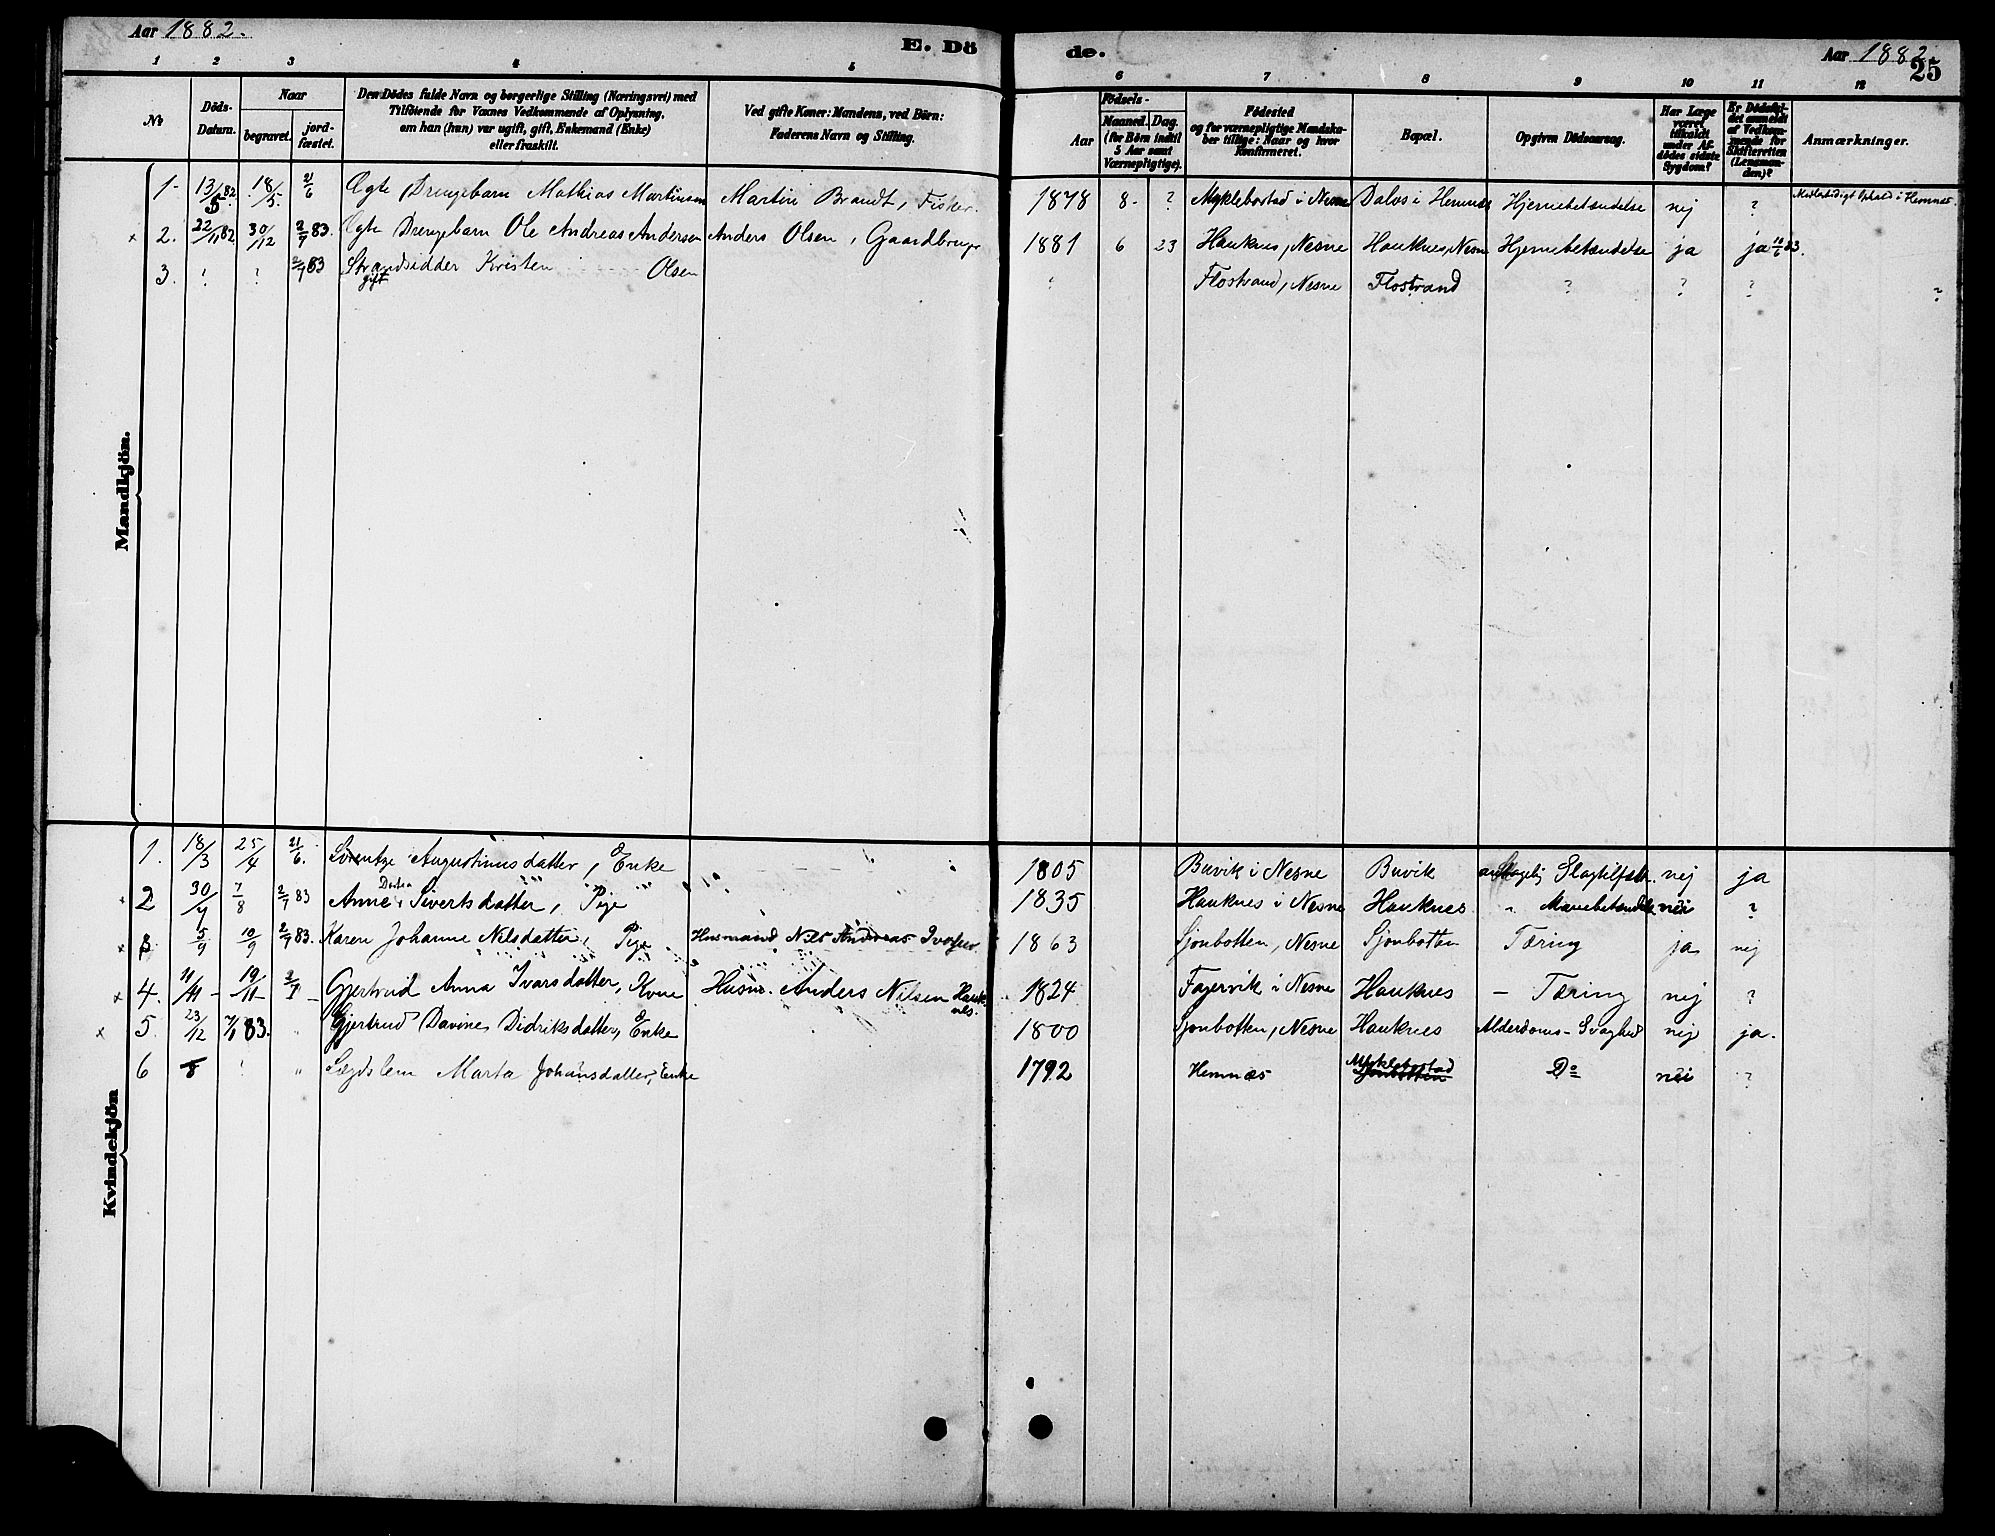 Aar 1882.
E. Dö
de.
Aar 1882.
25
1 2 3 4 5 6 7 8 9 10 11 12
No
Döds-Datum.
Naar
begravet.
jord-fæstet.
Den Dödes fulde Navn og borgerlige Stilling (Næringsvei) med
Tilföiende for Voxnes Vedkommende af Oplysning,
om han (hun) var ugift, gift, Enkemand (Enke)
eller fraskilt.
Ved gifte Koner: Mandens, ved Börn:
Faderens Navn og Stilling.
Födsels-
Aar
Maaned. Dag.
(for Börn indtil
5 Aar samt
Værnepligtige).
Födested
og for værnepligtige Mandska-
ber tillige: Naar og hvor
Konfirmeret.
Bopæl.
Opgiven Dödsaarsag.
Har Læge
været
tilkaldt
under Af-
dödes sidste
Sygdom?
Er Dödsfal-
det anmeldt
af Vedkom-
mende for
Skifteretten
(Lensman-
den)?
Anmærkninger.
Mandkjön.
1. 13/5 82 18/5. 21/6 Ægte Drengebarn Mathias Martinsen Martin Brandt, Fisker. 1878 8. ? Myklebostad i Nesne Dalos i Hemnæs Hjernebetændelse nej ? Ophold i Hemnæs
x 2. 22/11 82 30/12 2/7 83. Ægte Drengebarn Ole Andreas Andersen Anders Olsen, Gaardbruger 1881 6 23 Hauknes, Nesne Hauknes, Nesne Hjernebetændelse ja ja 10/6 83.
3. ? ? 2/7 83 Strandsidder Kristen Olsen Flostrand, Nesne Flostrand ? ? ? ?
gift
Kvindekjön
1. 18/3 25/4 21/6. Lorentze Augustinusdatter, Enke 1805 Buvik i Nesne Buvik Slagtilfæld. nej ja
2 30/7 7/8 2/7 83 Anne Sivertsdatter, Pige 1835 Hauknes i Nesne Hauknes " Mavebetændelse nei ?
x 3 5/9 10/9 2/7 83. Karen Johanne Nilsdatter, Pige Husmand Nils Andreas 1863 Sjonbotten, Nesne Sjonbotten Tæring ja nej
x 4. 11/11 - 19/11 - 2/7 - Gjertrud Anna Ivarsdatter, Kone Husm. Anders Nilsen Hauknes. 1824 Fagervik i Nesne Hauknes - Tæring nej ?
x 5. 23/12 7/1 83. " Gjertrud Davine Didriksdatter, Enke 1800 Sjonbotten, Nesne Hauknes Alderdoms-Svaghed nej ja.
6 ? ? " Lægdslem Marta Johansdatter, Enke 1792 Hemnæs Myklebostad Do nei ?
Sjonbotten